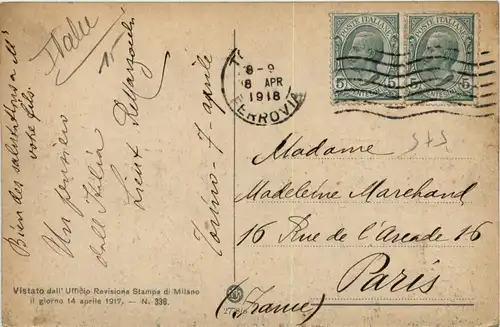 Italie
Bien des salutations a M'
votre fils.
Un pensiero
dall'Italia
Lieut
Torino - 7 - aprile
8-9
8 APR
1918
FERROVIA
POSTE ITALIANE
5
5
POSTE ITALIANE
5
5
Madame
Madeleine Marchand
16 Rue de l'Arcade 16
Paris
(France)
Vistato dall' Ufficio Revisione Stampa di Milano
il giorno 14 aprile 1917. — N. 336.